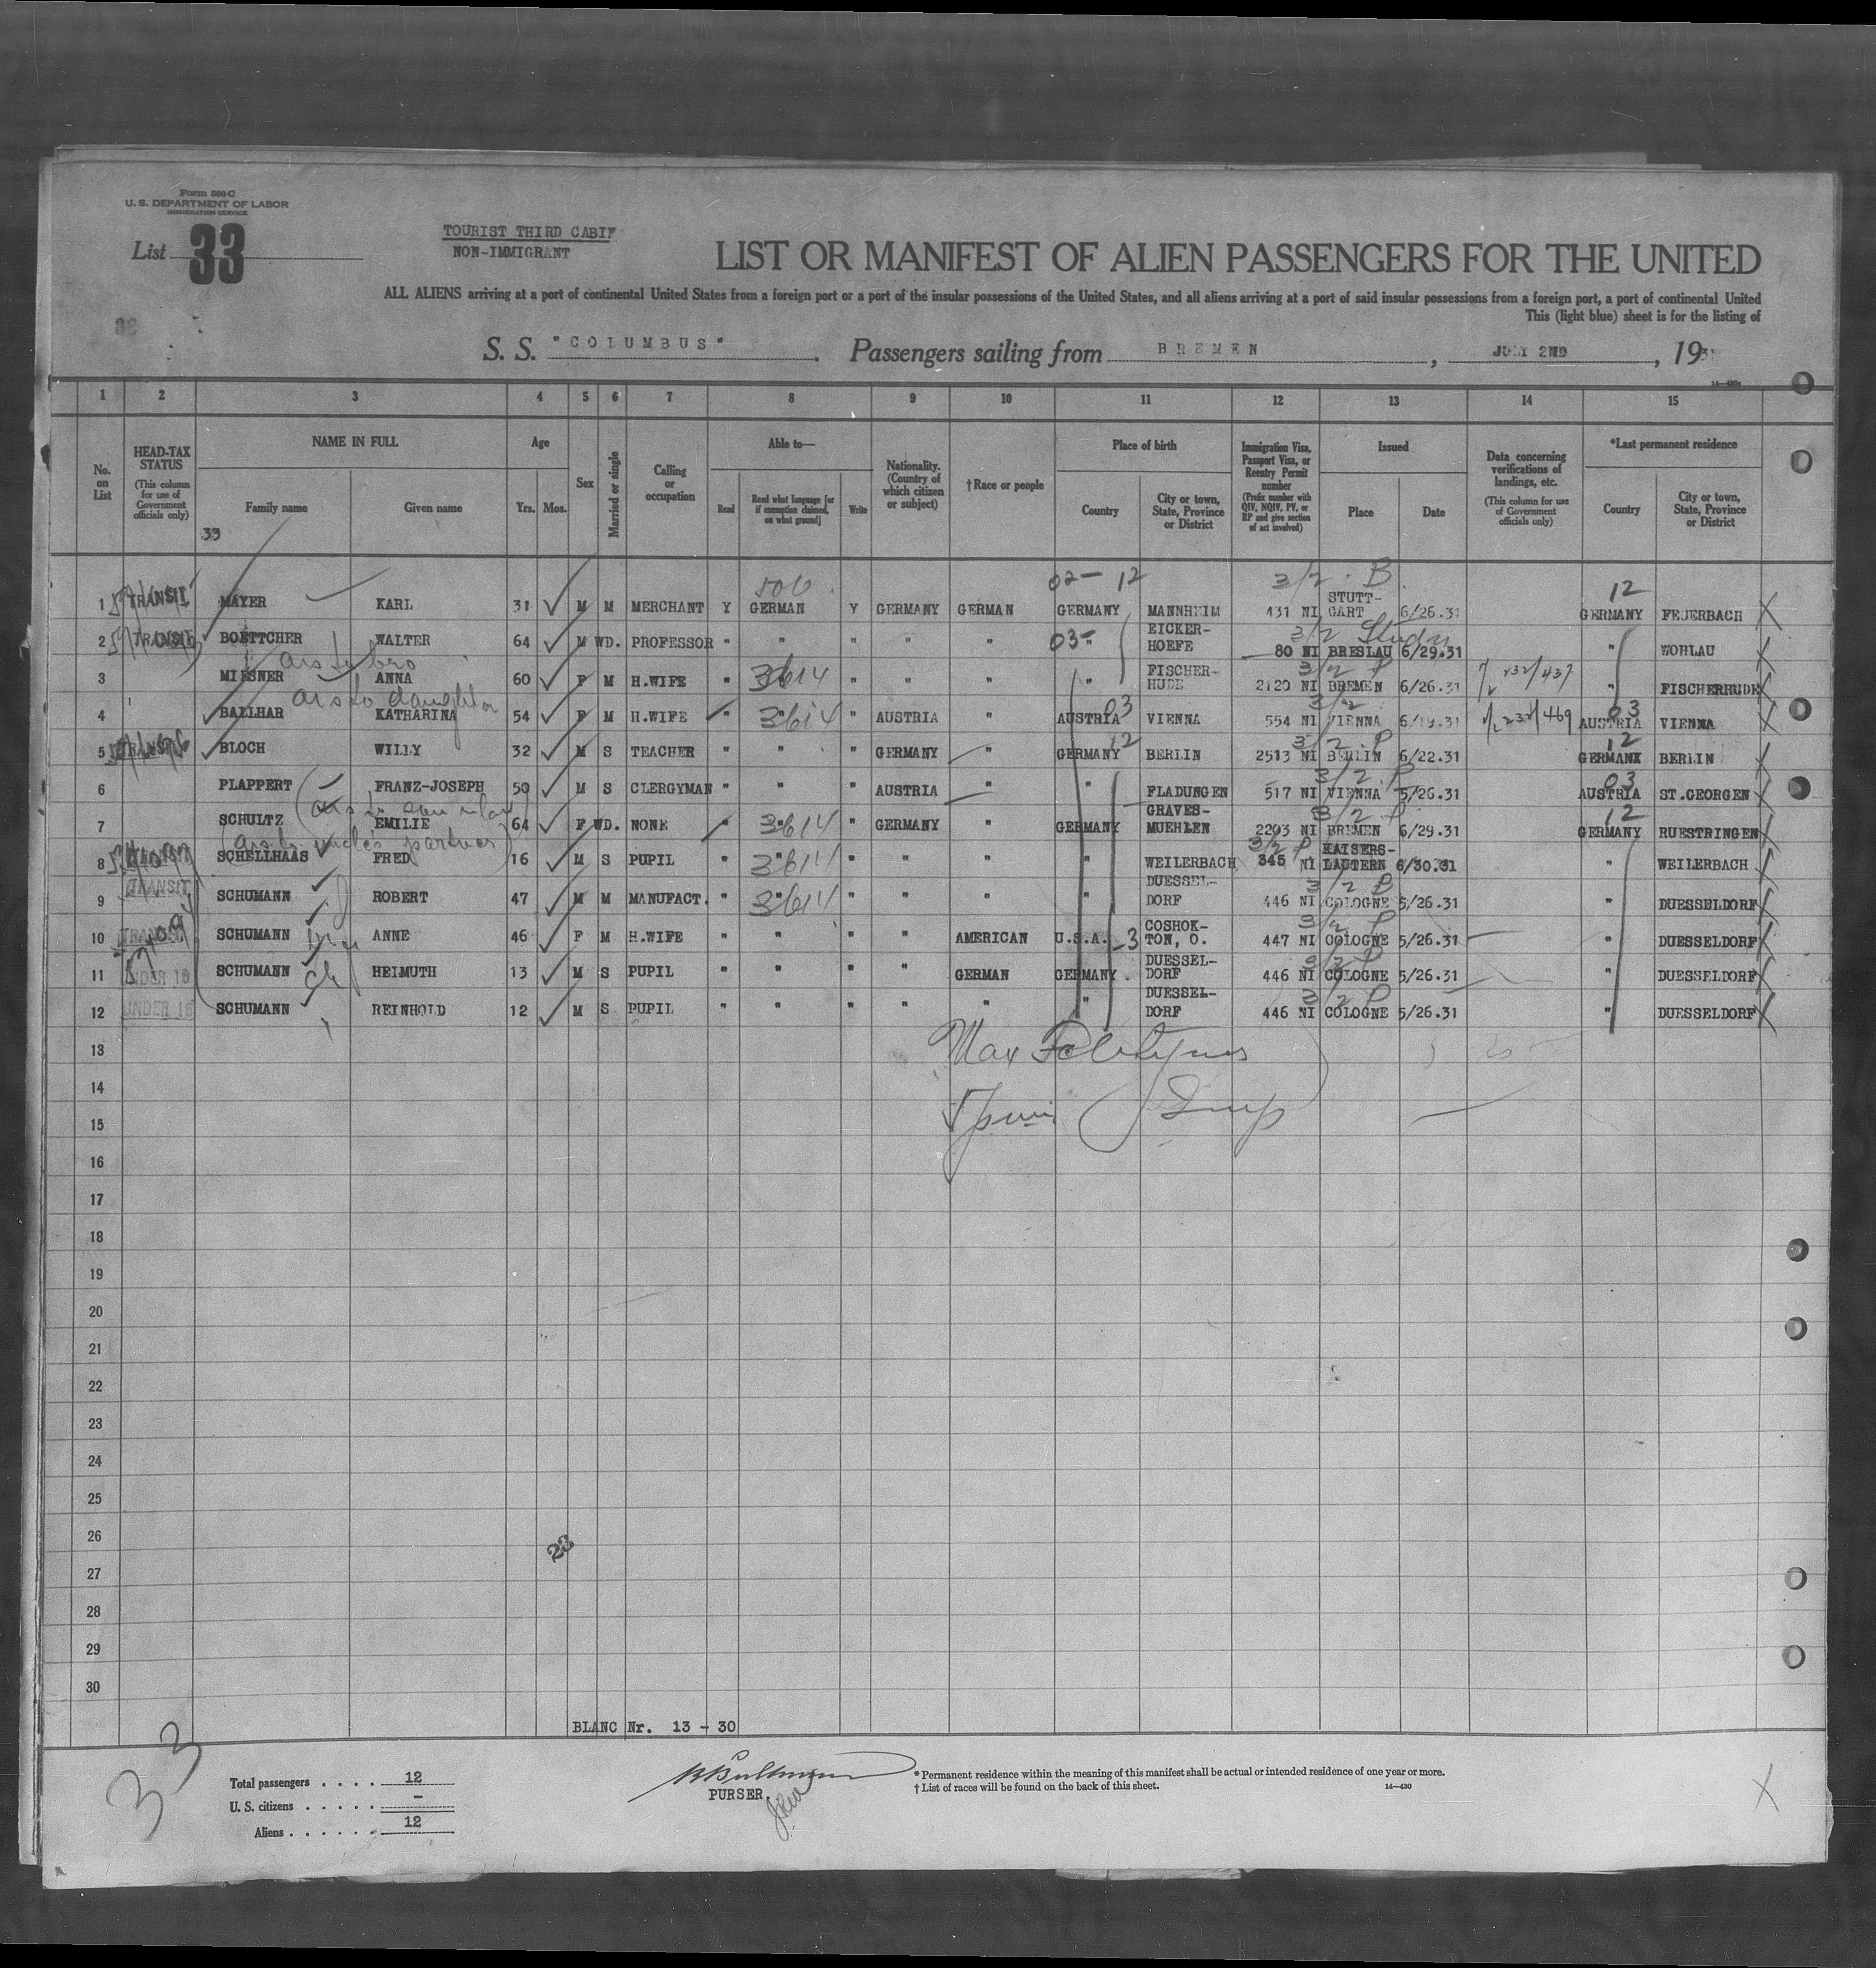 Form 500 C
U. S. DEPARTMENT OF LABOR
IMMIGRATION SERVICE
List 33
TOURIST THIRD CABIN
NON-IMMIGRANT
LIST OR MANIFEST OF ALIEN PASSENGERS FOR THE UNITED
ALL ALIENS arriving at a port of continental United States from a foreign port or a port of the insular possessions of the United States, and all aliens arriving at a port of said insular possessions from a foreign port, a port of continental United
This (light blue) sheet is for the listing of
S. S. "COLUMBUS" . Passengers sailing from BREMEN , JULY 2ND , 1931
14—430a
1 2 3 4 5 6 7 8 9 10 11 12 13 14 15
No. on List
HEAD-TAX STATUS (This column for use of Government officials only)
NAME IN FULL
Family name
Given name
33
Age
Yrs. Mos.
Sex
Married or single
Calling or occupation
Able to—
Read
Read what language [or if exemption claimed, on what ground]
Write
Nationality. (Country of which citizen or subject)
†Race or people
Place of birth
Country
City or town, State, Province or District
Immigration Visa, Passport Visa, or Reentry Permit number (Prefix number with QIV, NQIV, PV, or RP and give section of act involved)
Issued
Place
Date
Data concerning verifications of landings, etc. (This column for use of Government officials only)
*Last permanent residence
Country
City or town, State, Province or District
500 02- 12 3/2 B 12
1 TRANSIT MAYER KARL 31 M M MERCHANT Y GERMAN Y GERMANY GERMAN GERMANY MANNHEIM 431 NI STUTT-GART 6/26.31 GERMANY FEUERBACH
03- 3/2 Study
2 TRANSIT BOETTCHER WALTER 64 M WD. PROFESSOR " " " " " " EICKER-HOEFE 80 NI BRESLAU 6/29.31 " WOHLAU
3614 3/2 P
3 MIESNER ANNA 60 F M H.WIFE " " " " " " FISCHER-HUDE 2120 NI BREMEN 6/26.31 " FISCHERHUDE
to daughter
3614 03 3/2 03
4 BALLHAR KATHARINA 54 F M H.WIFE " " " AUSTRIA " AUSTRIA VIENNA 554 NI VIENNA 6/19.31 AUSTRIA VIENNA
12 3/2 P 12
5 TRANSIT BLOCH WILLY 32 M S TEACHER " " " GERMANY " GERMANY BERLIN 2513 NI BERLIN 6/22.31 GERMANY BERLIN
3/2 P 03
6 PLAPPERT FRANZ-JOSEPH 50 M S CLERGYMAN " " " AUSTRIA " " FLADUNGEN 517 NI VIENNA 5/26.31 AUSTRIA ST.GEORGEN
3614 3/2 P 12
7 SCHULTZ EMILIE 64 F WD. NONE " " " GERMANY " GERMANY GRAVES-MUEHLEN 2203 NI BREMEN 6/29.31 GERMANY RUESTRINGEN
to uncle's partner
3614 3/2 P
8 SCHELLHAAS FRED 16 M S PUPIL " " " " " " WEILERBACH 345 NI KAISERS-LAUTERN 6/30.31 " WEILERBACH
3614 3/2 B
9 TRANSIT SCHUMANN ROBERT 47 M M MANUFACT. " " " " " " DUESSEL-DORF 446 NI COLOGNE 5/26.31 " DUESSELDORF
3 3/2 P
10 TRANSIT SCHUMANN ANNE 46 F M H.WIFE " " " " AMERICAN U.S.A. COSHOK-TON, O. 447 NI COLOGNE 5/26.31 " DUESSELDORF
3/2 P
11 UNDER 16 SCHUMANN HELMUTH 13 M S PUPIL " " " " GERMAN GERMANY DUESSEL-DORF 446 NI COLOGNE 5/26.31 " DUESSELDORF
3/2 P
12 UNDER 16 SCHUMANN REINHOLD 12 M S PUPIL " " " " " " DUESSEL-DORF 446 NI COLOGNE 5/26.31 " DUESSELDORF
13 Max
14
15
16
17
18
19
20
21
22
23
24
25
26
23
27
28
29
30
BLANC Nr. 13 - 30
33
Total passengers . . . . 12
U. S. citizens . . . . . -
Aliens . . . . . . 12
PURSER.
* Permanent residence within the meaning of this manifest shall be actual or intended residence of one year or more.
† List of races will be found on the back of this sheet.
14—430